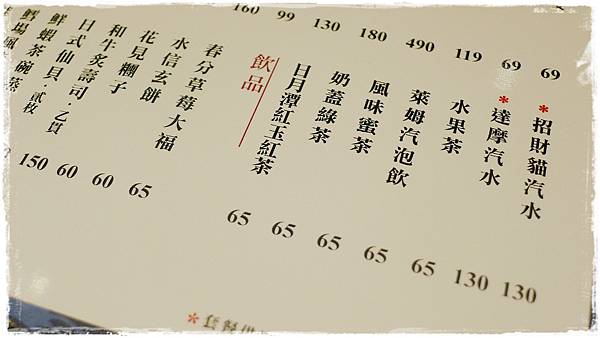 69
69
119
490
180
130
99
160
*招財貓汽水 130
*達摩汽水 130
水果茶 65
萊姆汽泡飲 65
風味蜜茶 65
奶蓋綠茶 65
日月潭紅玉紅茶 65
飲品
春分草莓大福 65
水信玄餅 60
花見糰子 60
和牛炙壽司．乙貫 150
日式仙貝．貳枚
鮮蝦茶碗蒸